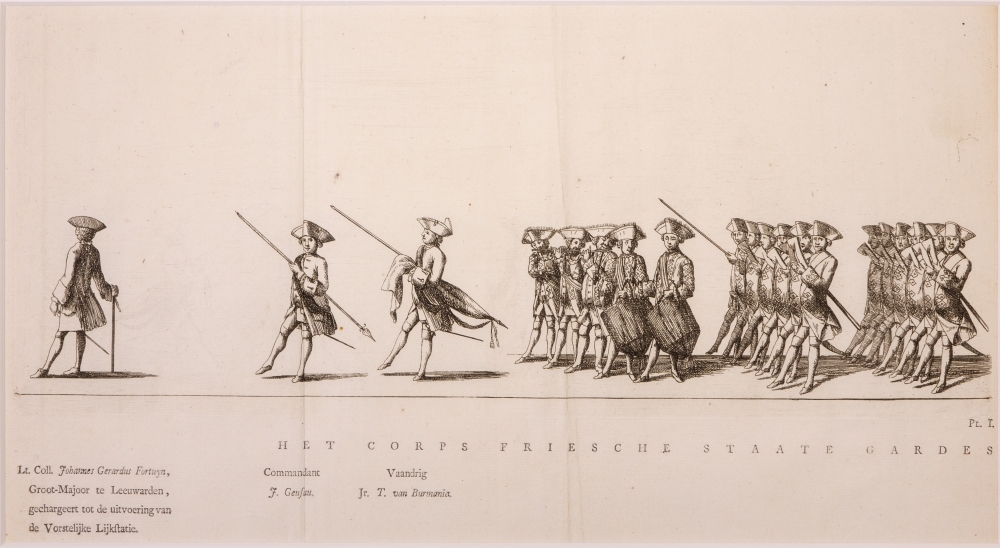 Pl. I.
HET CORPS FRIESCHE STAATE GARDES
Lt. Coll. Johannes Gerardus Fortuyn,
Groot-Majoor te Leeuwarden,
gechargeert tot de uitvoering van
de Vorstelijke Lijkſtatie.
Commandant
J. Geuſau.
Vaandrig
Jr. T. van Burmania.